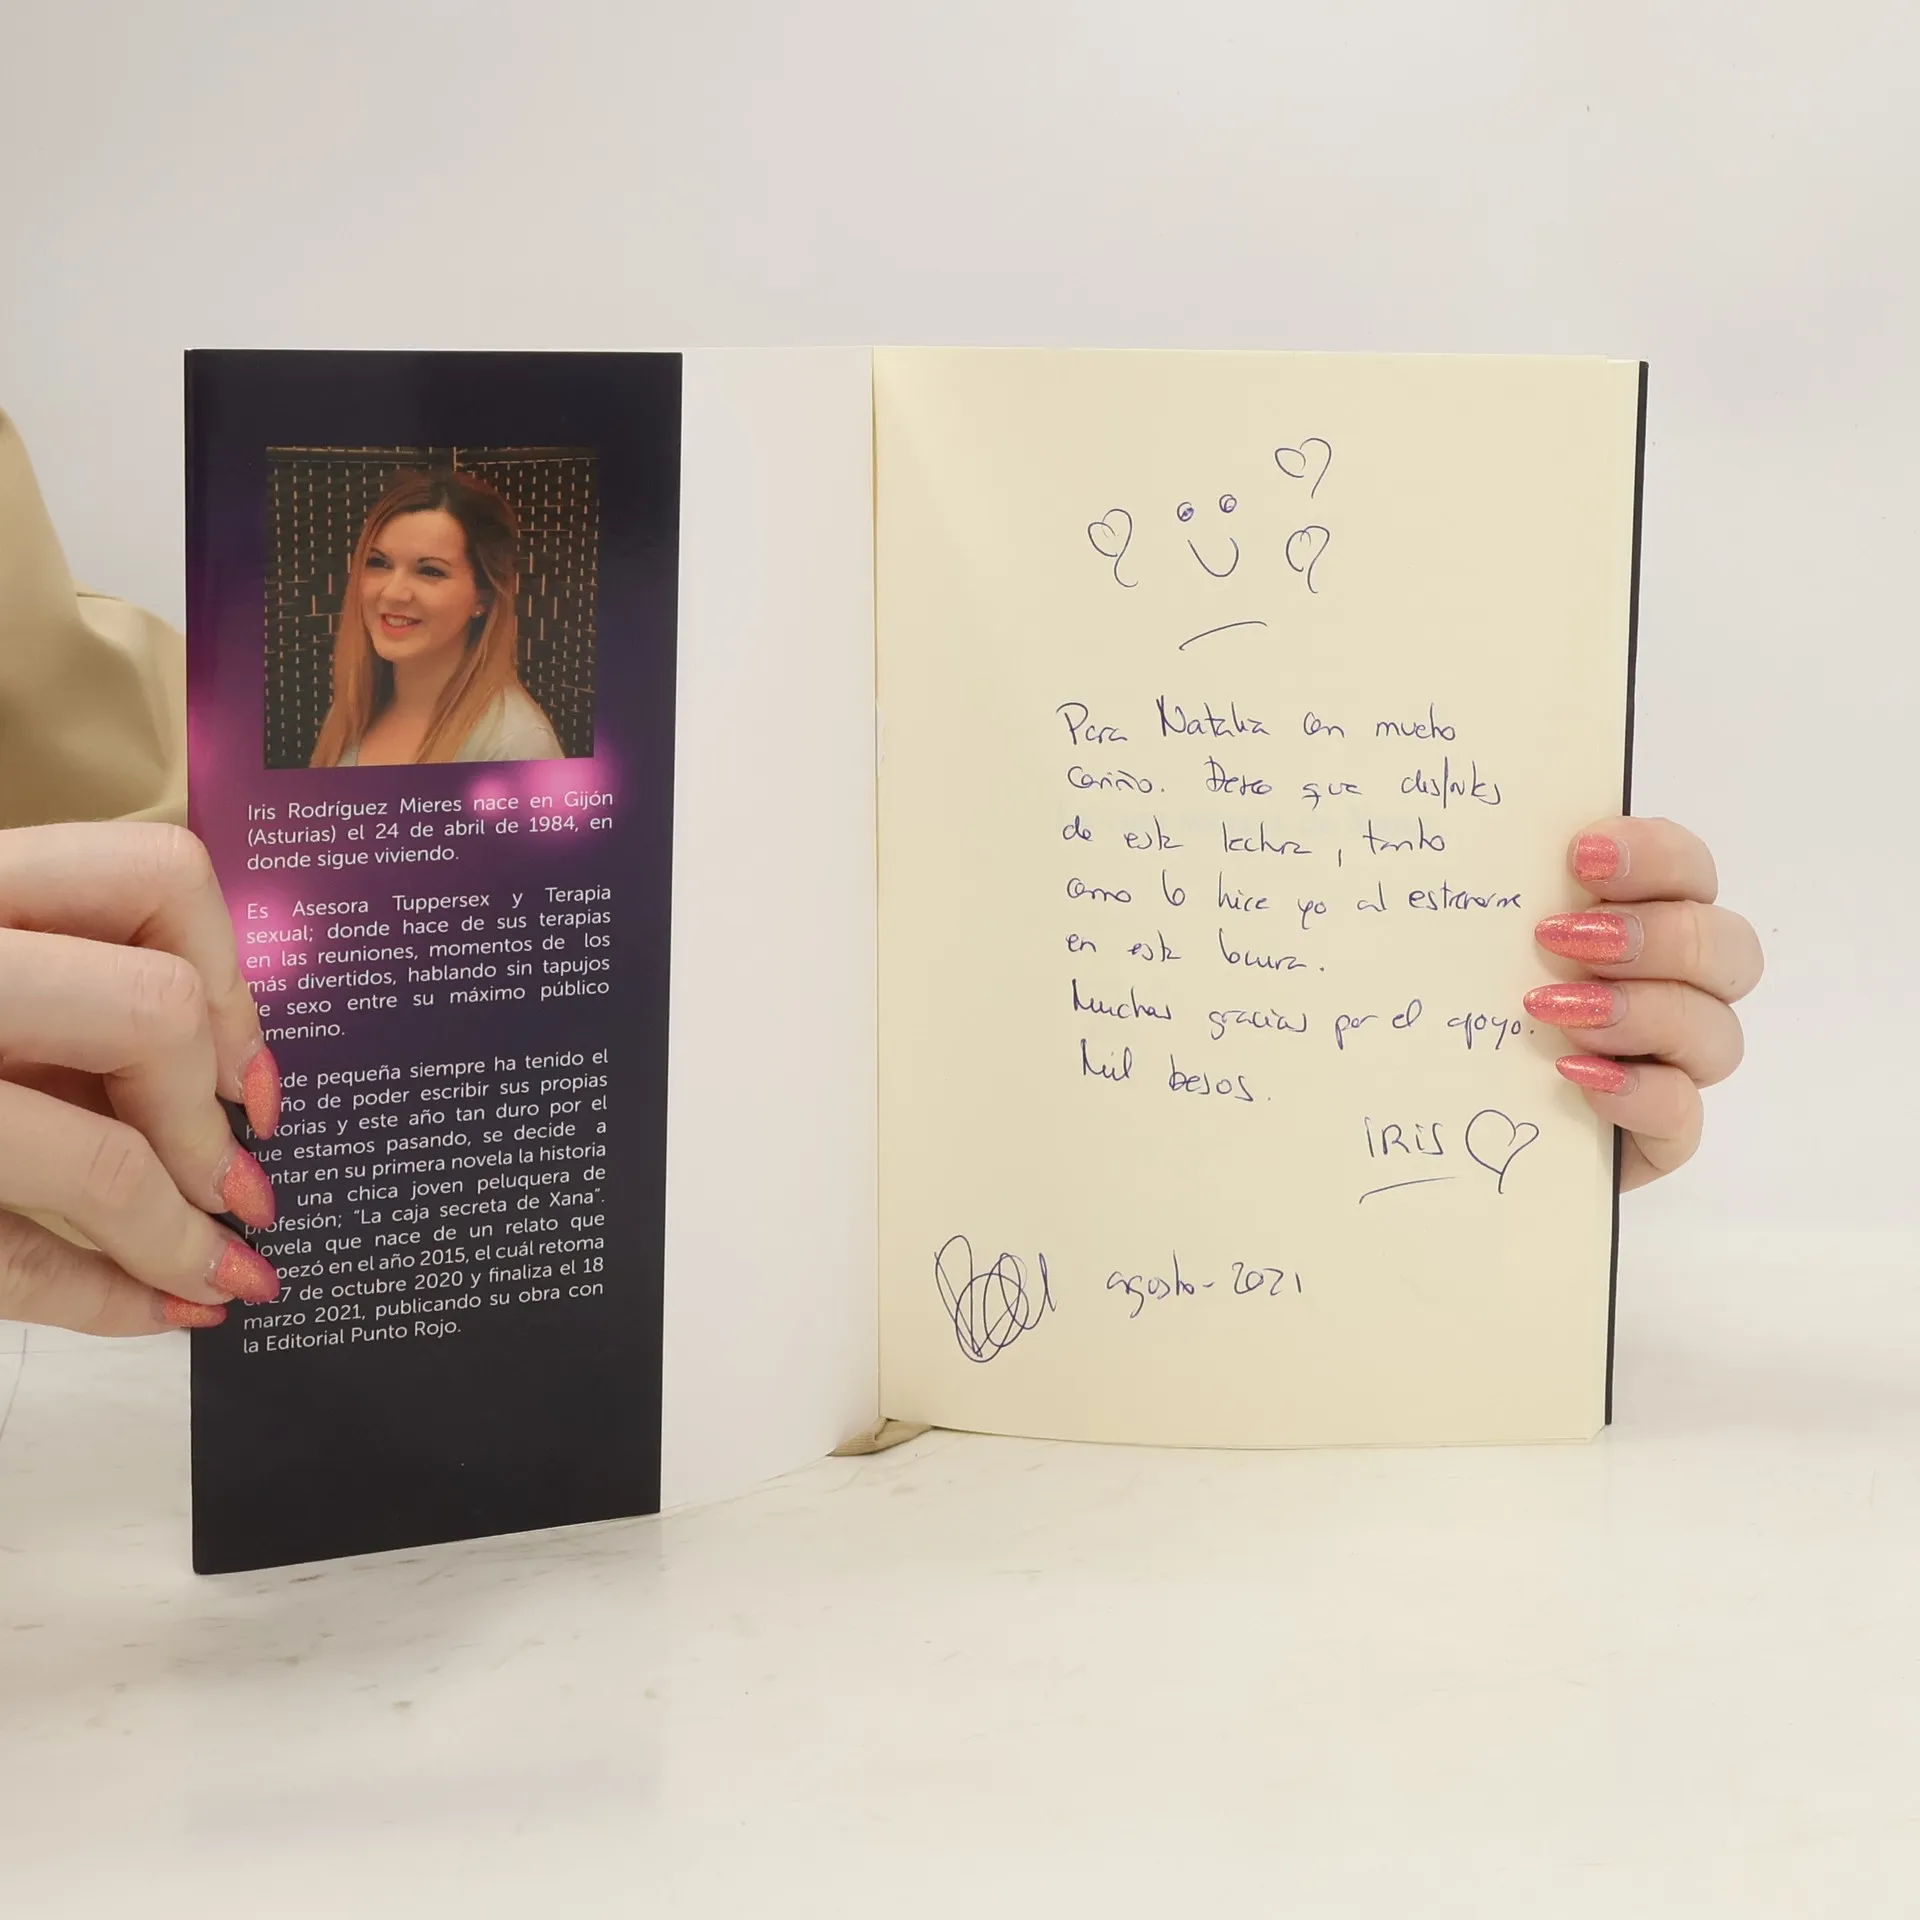 Iris Rodríguez Mieres nace en Gijón
(Asturias) el 24 de abril de 1984, en
donde sigue viviendo.
Es Asesora Tuppersex y Terapia
sexual; donde hace de sus terapias
en las reuniones, momentos de los
más divertidos, hablando sin tapujos
e sexo entre su máximo público
menino.
sde pequeña siempre ha tenido el
ño de poder escribir sus propias
torias y este año tan duro por el
que estamos pasando, se decide a
ntar en su primera novela la historia
una chica joven peluquera de
profesión; "La caja secreta de Xana".
Novela que nace de un relato que
pezó en el año 2015, el cuál retoma
27 de octubre 2020 y finaliza el 18
marzo 2021, publicando su obra con
la Editorial Punto Rojo.
Para Natalia con mucho
cariño. Deseo que disfrutes
de esta lectura, tanto
como lo hice yo al estrenarme
en esta locura.
Muchas gracias por el apoyo.
Mil besos.
IRIS
agosto-2021